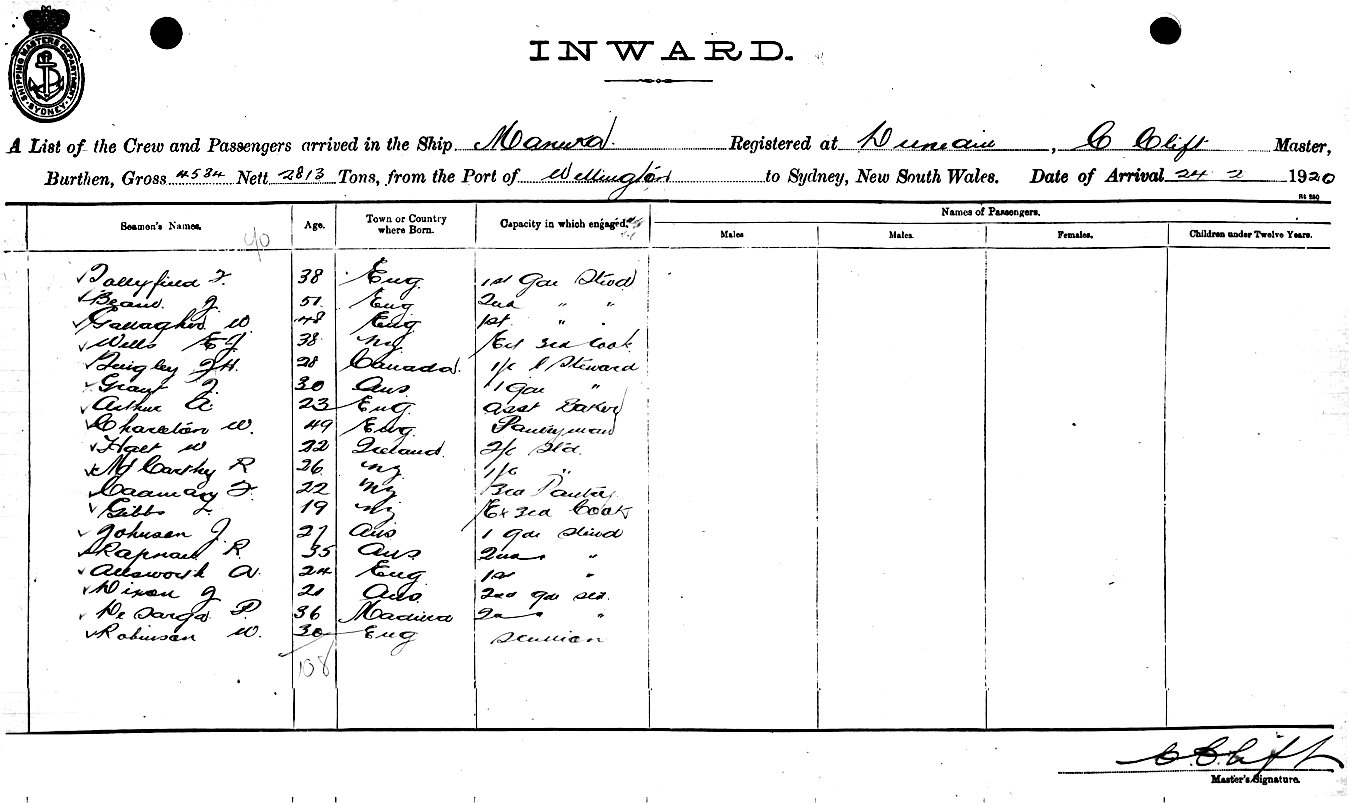 SHIPPING MASTERS DEPARTMENT SYDNEY
INWARD.
A List of the Crew and Passengers arrived in the Ship Manuka Registered at Dunedin, C Clift Master,
Burthen, Gross 4534 Nett 2813 Tons, from the Port of Wellington to Sydney, New South Wales. Date of Arrival 24 2 1920
Seamen's Names. Age. Town or Country where Born. Capacity in which engaged. Names of Passengers.
Males Males. Females. Children under Twelve Years.
40
F. 38 Eng 1st Stwd
J. 51 Eng 2nd " "
Gallagher W. 48 Eng 1st " "
Wells E J 38 NZ Ex 3rd Cook
Quigley J H. 28 Canada
Grant J. 30 Aus 1 "
Arthur A 23 Eng Asst Baker
Charleton W. 49 Eng Pantryman
W 22 Ireland 2/c Std.
McCarthy R 26 NZ 1/c "
F. 22 NZ 3rd Pantry
Gibbs 19 NZ Ex 3rd Cook
Johnson J. 27 Aus 1 Stwd
R. 35 Aus 2nd "
A. 24 Eng 1st "
Dixon J 21 Aus 2nd
P. 36 Madeira "
Robinson W. 30 Eng
108
C. Clift
Master's Signature.